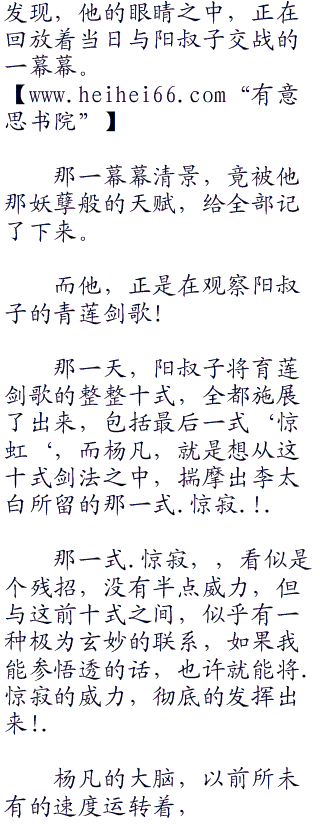 发现，他的眼睛之中，正在
回放着当日与阳叔子交战的
一幕幕。
【www.heihei66.com“有意
思书院”】
那一幕幕清景，竟被他
那妖孽般的天赋，给全部记
了下来。
而他，正是在观察阳叔
子的青莲剑歌！
那一天，阳叔子将育莲
剑歌的整整十式，全都施展
了出来，包括最后一式‘惊
虹‘，而杨凡，就是想从这
十式剑法之中，揣摩出李太
白所留的那一式.惊寂.!.
那一式.惊寂，，看似是
个残招，没有半点威力，但
与这前十式之间，似乎有一
种极为玄妙的联系，如果我
能参悟透的话，也许就能将.
惊寂的威力，彻底的发挥出
来!.
杨凡的大脑，以前所未
有的速度运转着，